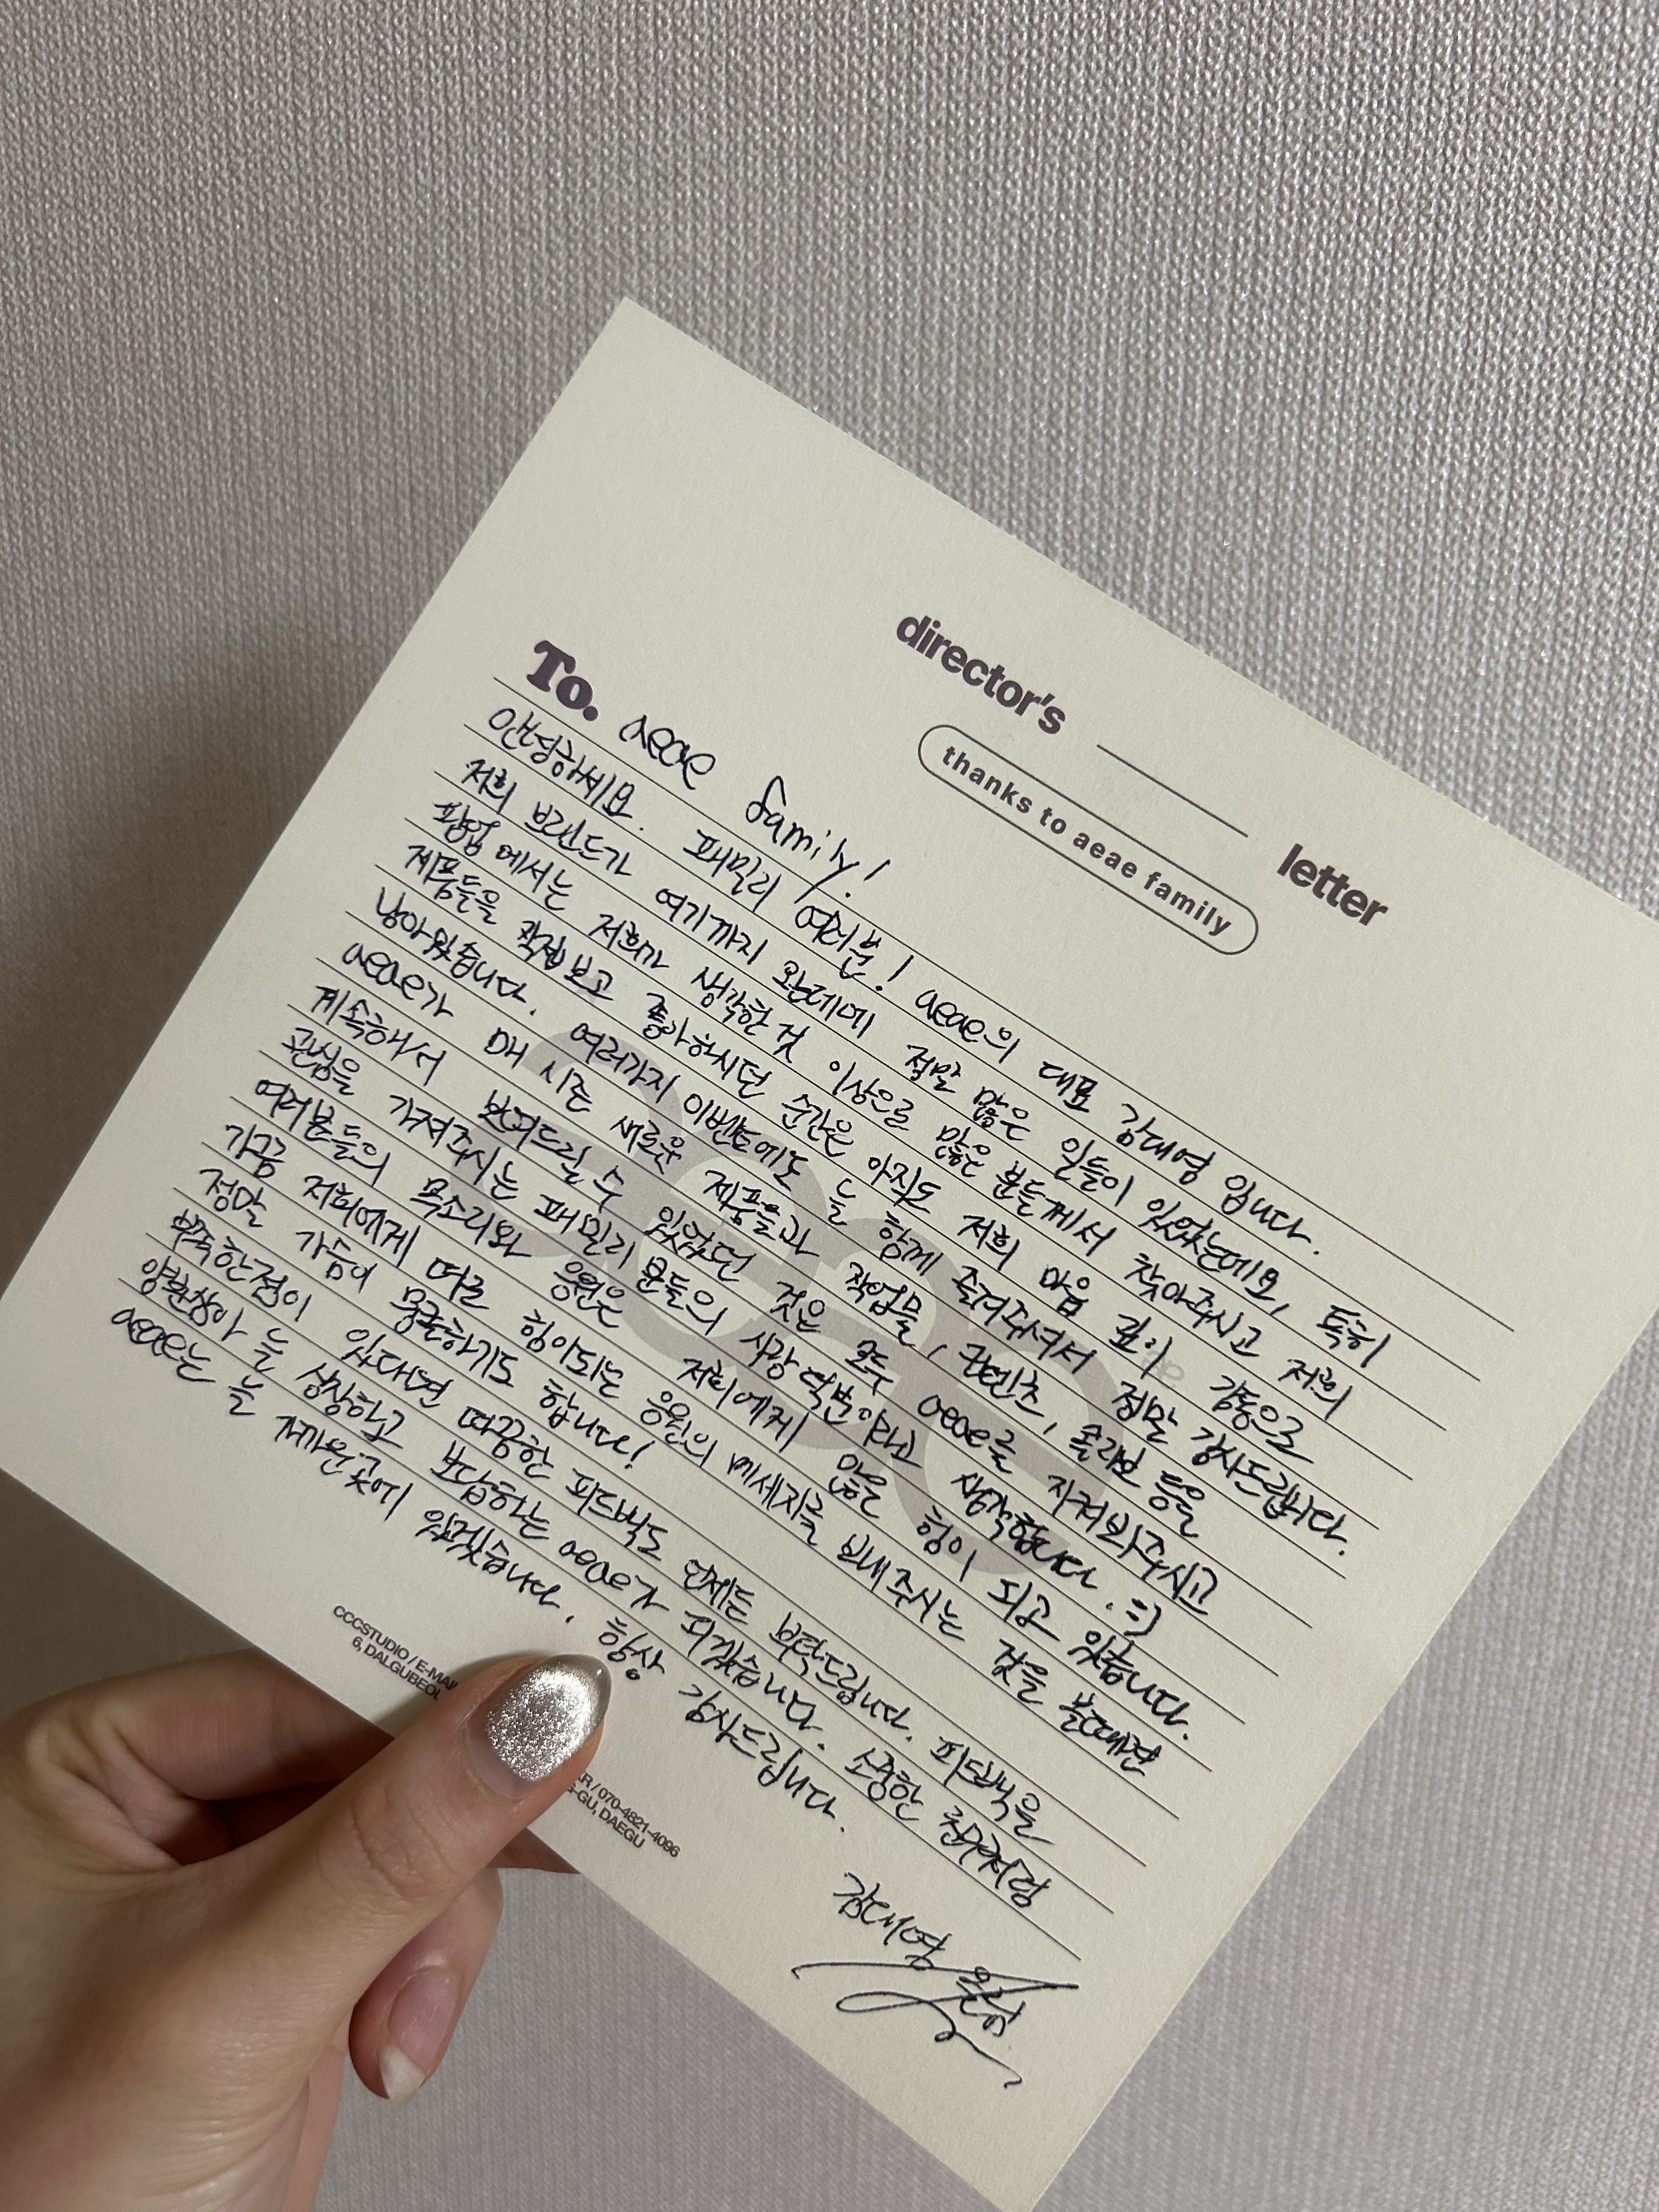 director's letter
thanks to aeae family
To. aeae family!
안녕하세요. 패밀리 여러분! aeae의 대표 김대영 입니다.
저희 브랜드가 여기까지 오는데에 정말 많은 일들이 있었는데요, 특히
팝업 에서는 저희가 생각한 것 이상으로 많은 분들께서 찾아주시고 저희
제품들을 직접보고 좋아하시던 순간은 아직도 저희 마음 깊이 감동으로
남아있습니다. 여러가지 이벤트에도 늘 함께 즐겨주셔서 정말 감사드립니다.
aeae가 매 시즌 새로운 제품들과 작업물, 콘텐츠, 콜라보 등을
계속해서 보여드릴 수 있었던 것은 모두 aeae를 지켜봐주시고
관심을 가져주시는 패밀리 분들의 사랑 덕분이라고 생각합니다. :)
여러분들의 목소리와 응원은 저희에게 많은 힘이 되고 있습니다.
가끔 저희에게 더욱 힘이되는 응원의 메세지를 보내주시는 것을 볼때면
정말 가슴이 뭉클하기도 합니다!
부족한점이 있다면 따끔한 피드백도 언제든 부탁드립니다. 피드백을
양분삼아 늘 성장하고 보답하는 aeae가 되겠습니다. 소중한 친구처럼
aeae는 늘 가까운곳에 있겠습니다. 항상 감사드립니다.
김대영 올림
CCCSTUDIO / E-MAI R / 070-4821-4096
6, DALGUBEOL G-GU, DAEGU